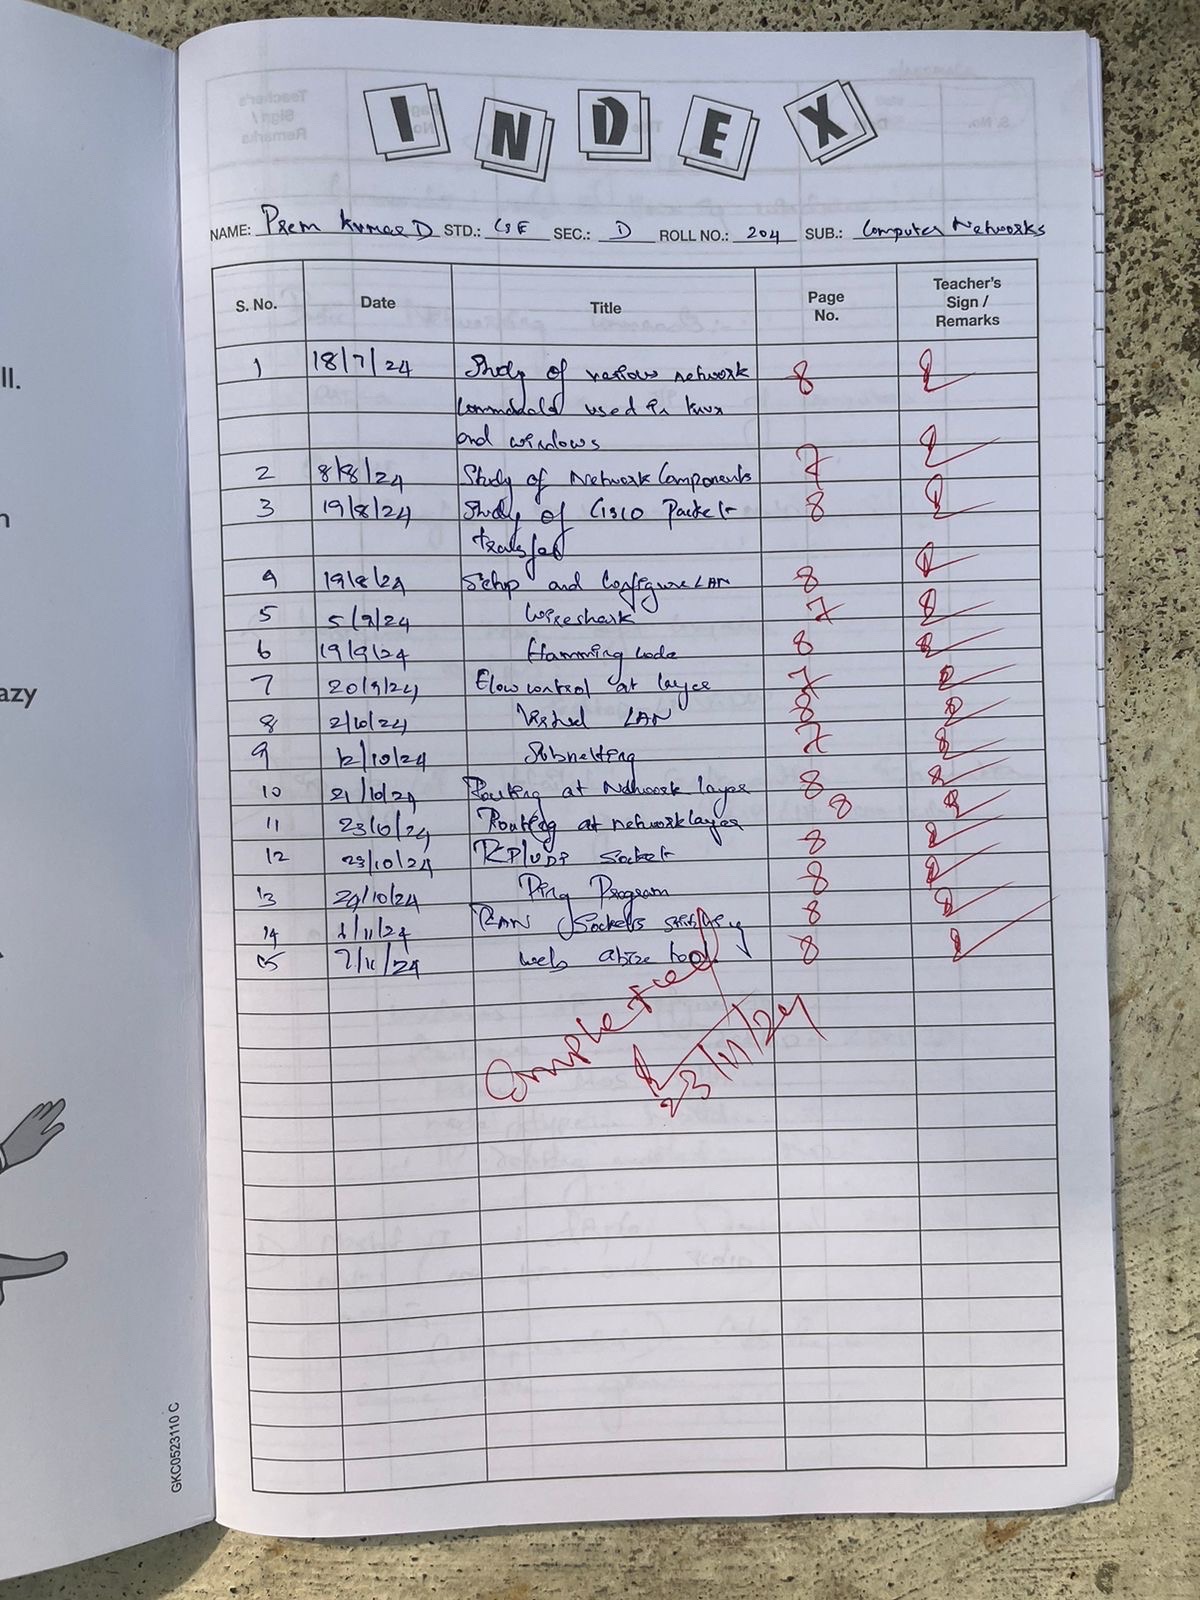 ll.
n
azy
GKC0523110 C
INDEX
NAME: Prem Kumar D STD.: CSE SEC.: D ROLL NO.: 204 SUB.: Computer Networks
S. No. Date Title Page No. Teacher's Sign / Remarks
1 18/7/24 Study of various network 8
used in linux
and windows
2 8/8/24 Study of Network Components 7
3 19/8/24 Study of CISCO Packet 8
4 19/8/24 Setup and Configure LAN 8
5 5/9/24 Wireshark 7
6 19/9/24 Hamming code 8
7 20/9/24 Flow control at layer 7
8 2/10/24 LAN 8
9 12/10/24 Subnetting 7
10 21/10/24 Routing at Network layer 8
11 23/10/24 Routing at network layer 8
12 23/10/24 Socket 8
13 24/10/24 Ping Program 8
14 1/11/24 Sockets 8
15 7/11/24 web 8
Completed
23/11/24